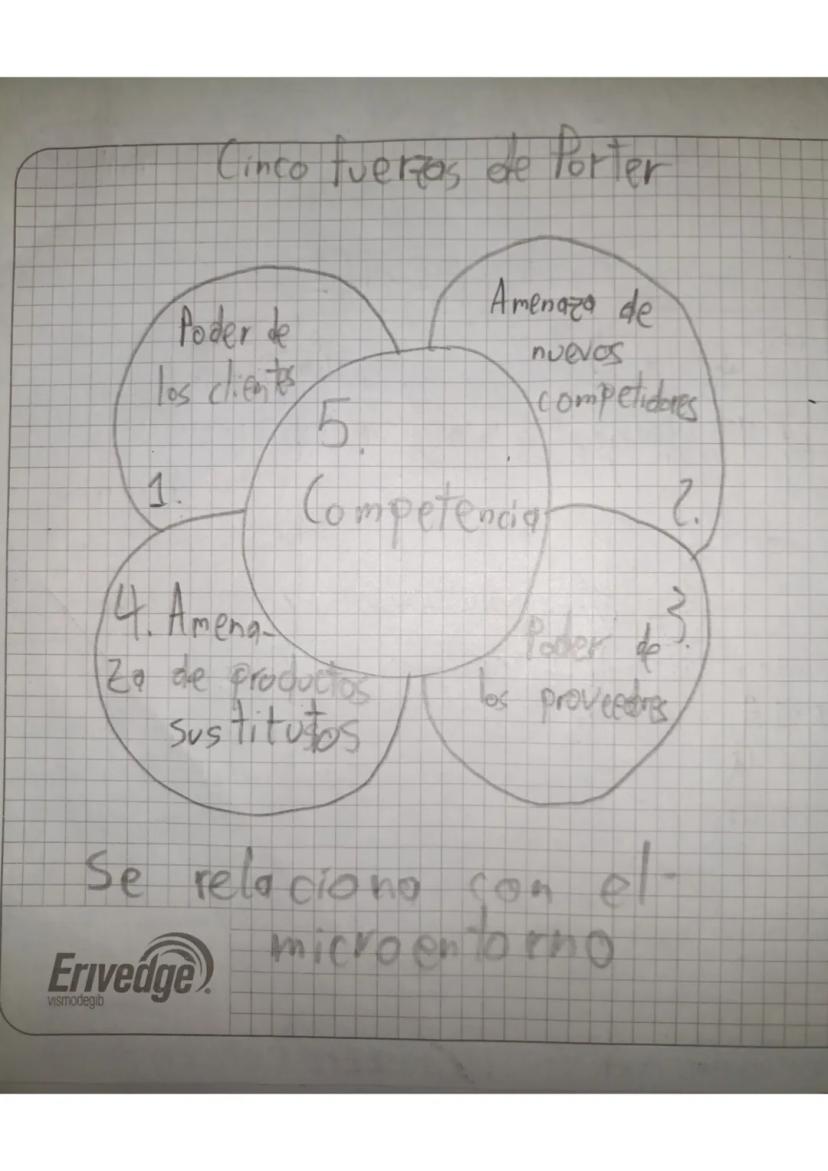 Cinco fuerzas de Porter
Poder de
los clientes
1.
Amenaza de
nuevos
competidores
2.
5.
Competencia
4. Amena-
za de productos
sustitutos
3.
Poder de
los proveedres
Se relaciona con el
microentorno
Erivedge
vismodegib